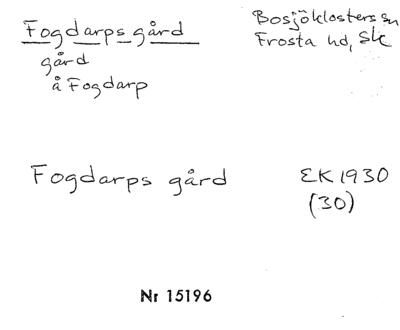 Fogdarps gård
gård
å Fogdarp
Bosjöklosters sn
Frosta hd, Sk
Fogdarps gård EK 1930
(30)
Nr 15196